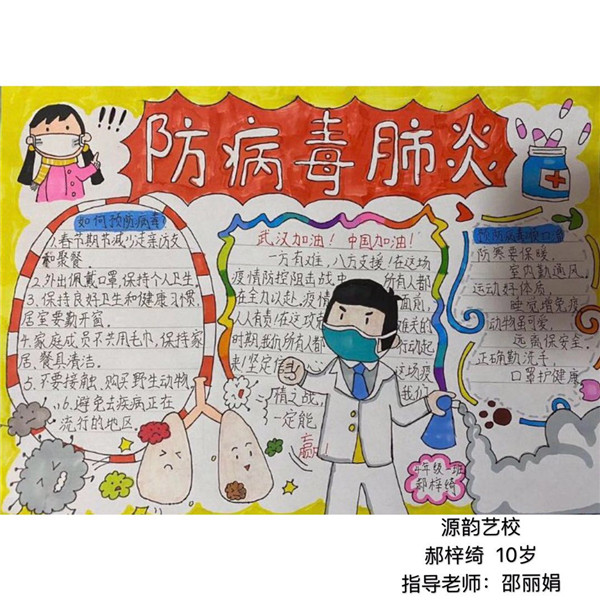 !!!
防病毒肺炎
如何预防病毒
1.春节期节减少走亲访友
和聚餐。
2.外出佩戴口罩,保持个人卫生。
3.保持良好卫生和健康习惯,
居室要勤开窗。
4.家庭成员不共用毛巾,保持家
居、餐具清洁。
5.不要接触、购买野生动物。
6.避免去疾病正在
流行的地区。
武汉加油!中国加油!
一方有难,八方支援!在这场
疫情防控阻击战中 所有人都
在全力以赴,疫情 面前,
人人有责!在这攻 难关的
时期,我们所有都 行动起
来!坚定信 这场疫
情之战, 我们
一定能
赢!
预防病毒
防寒要保暖,
室内勤通风。
运动好体质,
睡觉增免疫。
动物虽可爱,
远离保安全。
正确勤洗手,
口罩护健康
年级一班
郝梓绮
源韵艺校
郝梓绮 10岁
指导老师:邵丽娟